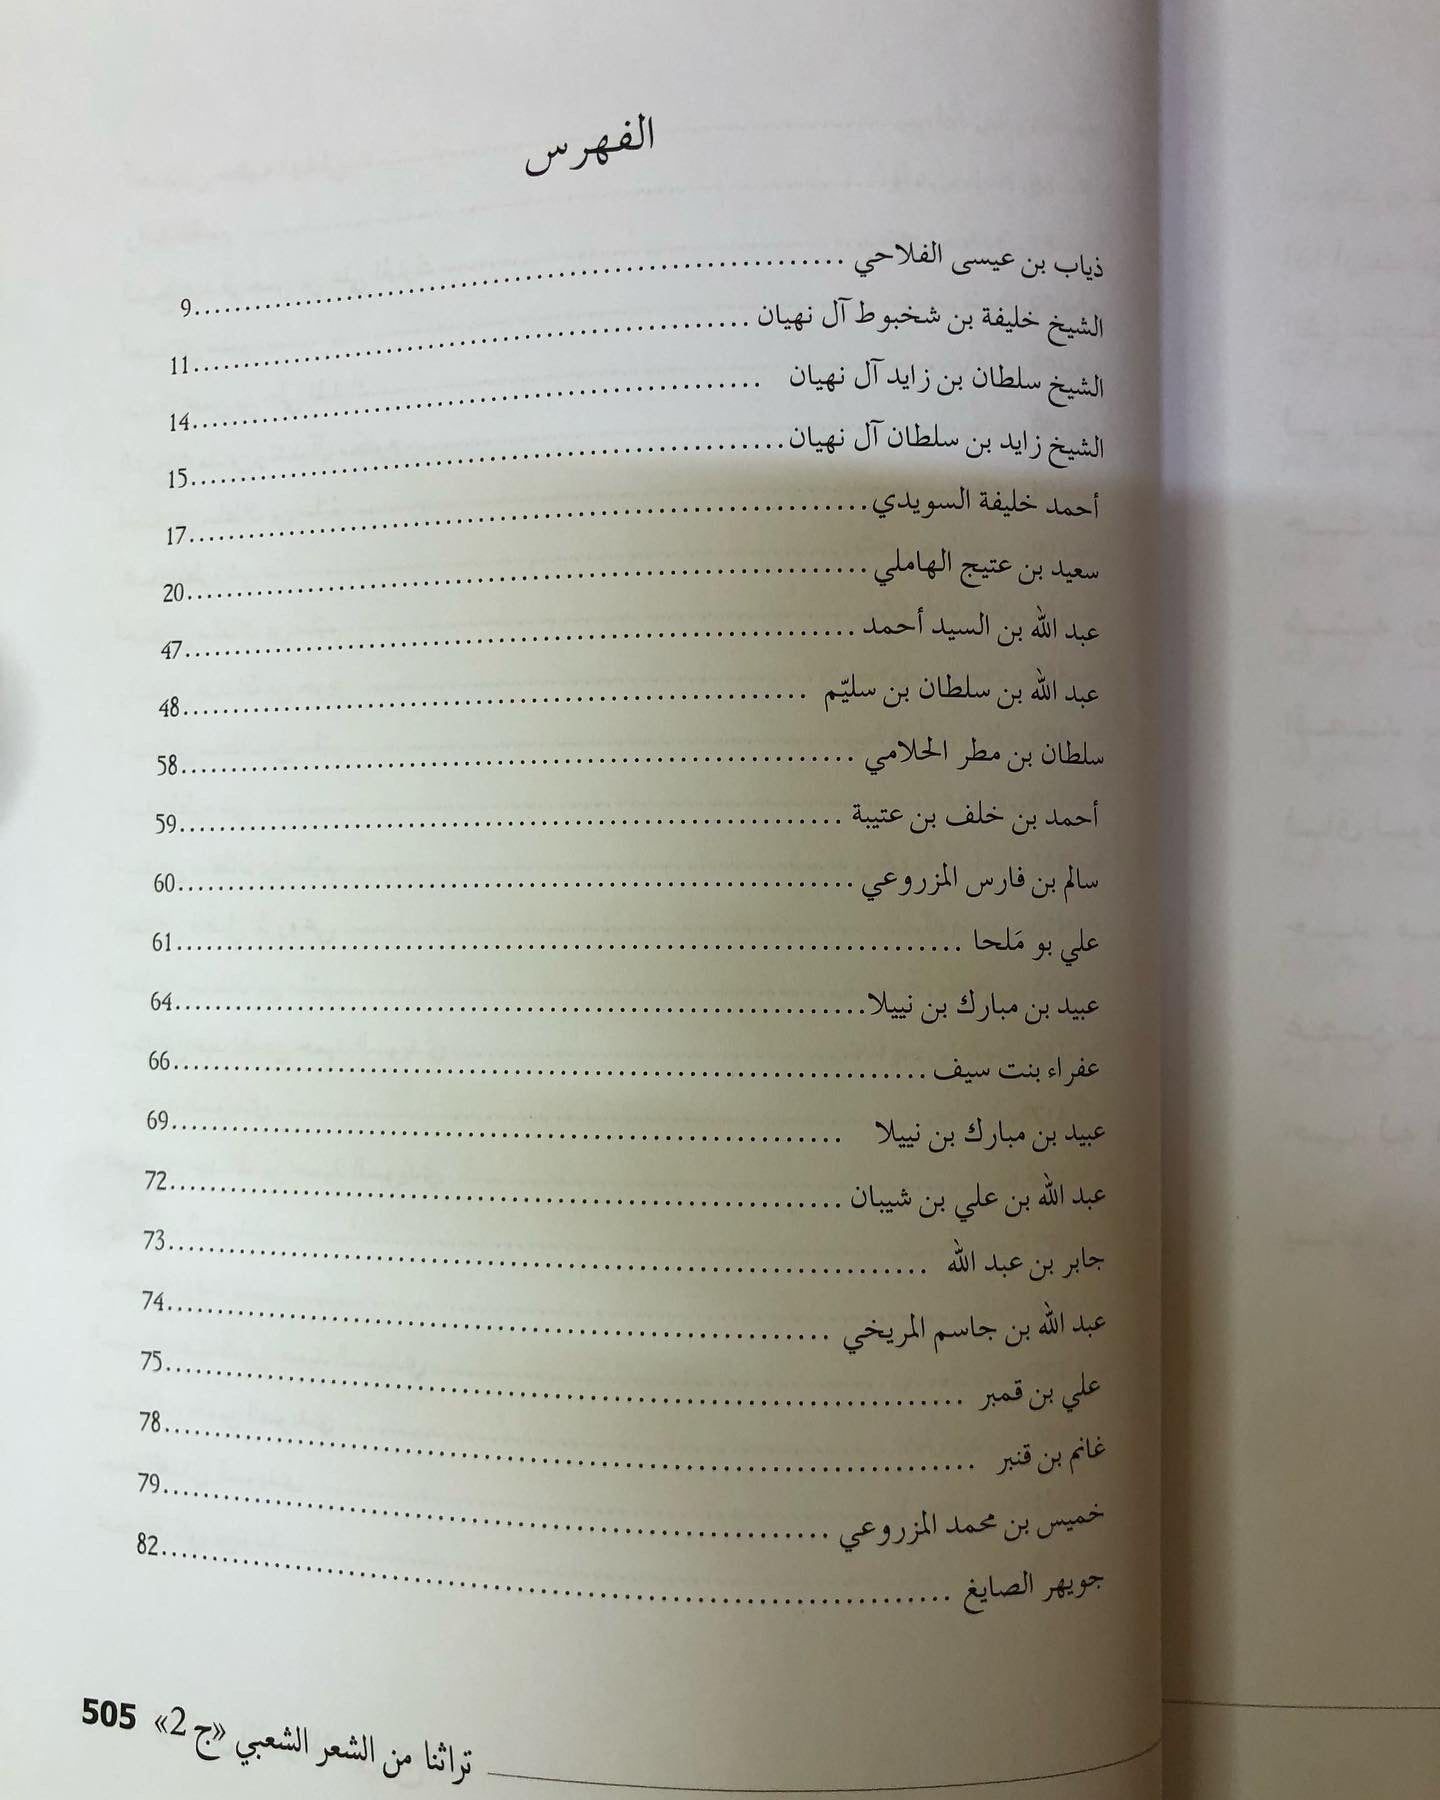 الفهرس
ذياب بن عيسى الفلاحي ........ 9
الشيخ خليفة بن شخبوط آل نهيان ........ 11
الشيخ سلطان بن زايد آل نهيان ........ 14
الشيخ زايد بن سلطان آل نهيان ........ 15
أحمد خليفة السويدي ........ 17
سعيد بن عتيج الهاملي ........ 20
عبد الله بن السيد أحمد ........ 47
عبد الله بن سلطان بن سليّم ........ 48
سلطان بن مطر الحلامي ........ 58
أحمد بن خلف بن عتيبة ........ 59
سالم بن فارس المزروعي ........ 60
علي بو مَلحا ........ 61
عبيد بن مبارك بن نييلا ........ 64
عفراء بنت سيف ........ 66
عبيد بن مبارك بن نييلا ........ 69
عبد الله بن علي بن شيبان ........ 72
جابر بن عبد الله ........ 73
عبد الله بن جاسم المريخي ........ 74
علي بن قمبر ........ 75
غانم بن قنبر ........ 78
خميس بن محمد المزروعي ........ 79
جويهر الصايغ ........ 82
تراثنا من الشعر الشعبي «ج 2» 505